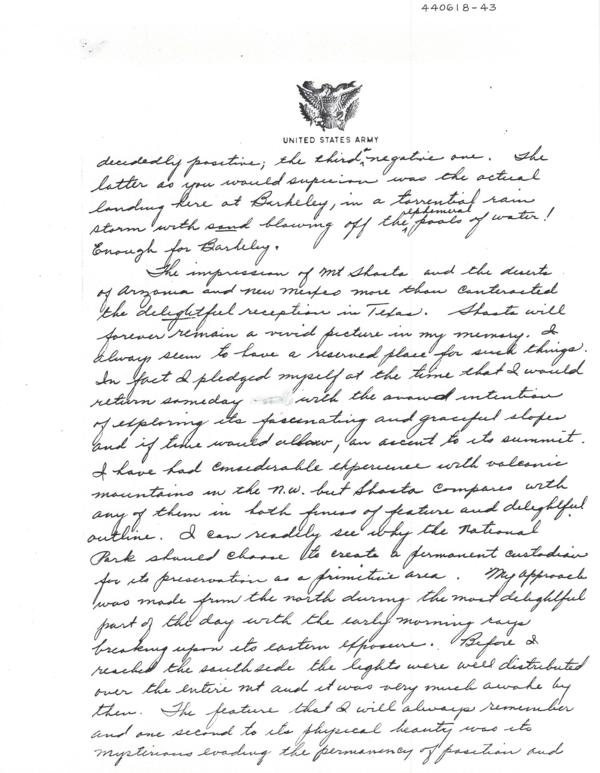 440618-43
UNITED STATES ARMY
decidedly positive; the third a negative one. The
latter as you would supicion was the actual
landing here at Barkeley, in a torrential rain
storm with sand blowing off the ephemeral pools of water!
Enough for Barkeley.
The impression of Mt Shasta and the deserts
of Arzonia and New Mexico more than conteracted
the delightful reception in Texas. Shasta will
forever remain a vivid picture in my memory. I
always seem to have a reserved place for such things.
In fact I pledged myself at the time that I would
return someday with the avowed intention
of exploring its fascinating and graceful slopes
and if time would allow, an ascent to its summit.
I have had considerable experience with valcanic
mountains in the N.W. but Shasta compares with
any of them in both finess of feature and delightful
outline. I can readily see why the National
Park should choose to create a permanent custodian
for its preservation as a primitive area. My approach
was made from the north during the most delightful
part of the day with the early morning rays
breaking upon its eastern exposure. Before I
reached the south side the lights were well distributed
over the entire mt and it was very much awake by
then. The feature that I will always remember
and one second to its physical beauty was its
mysterious evading the permanency of position and